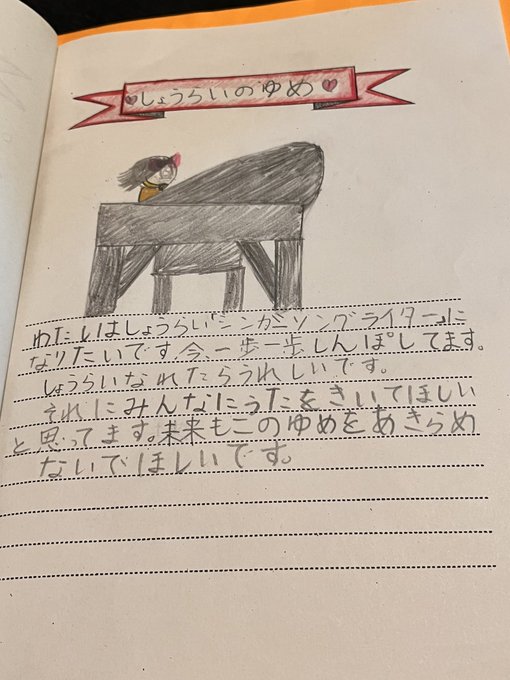 しょうらいのゆめ
わたしはしょうらい「シンガーソングライター」に
なりたいです今、一歩一歩しんぽしてます。
しょうらいなれたらうれしいです。
それにみんなにうたをきいてほしい
と思ってます。未来もこのゆめをあきらめ
ないでほしいです。